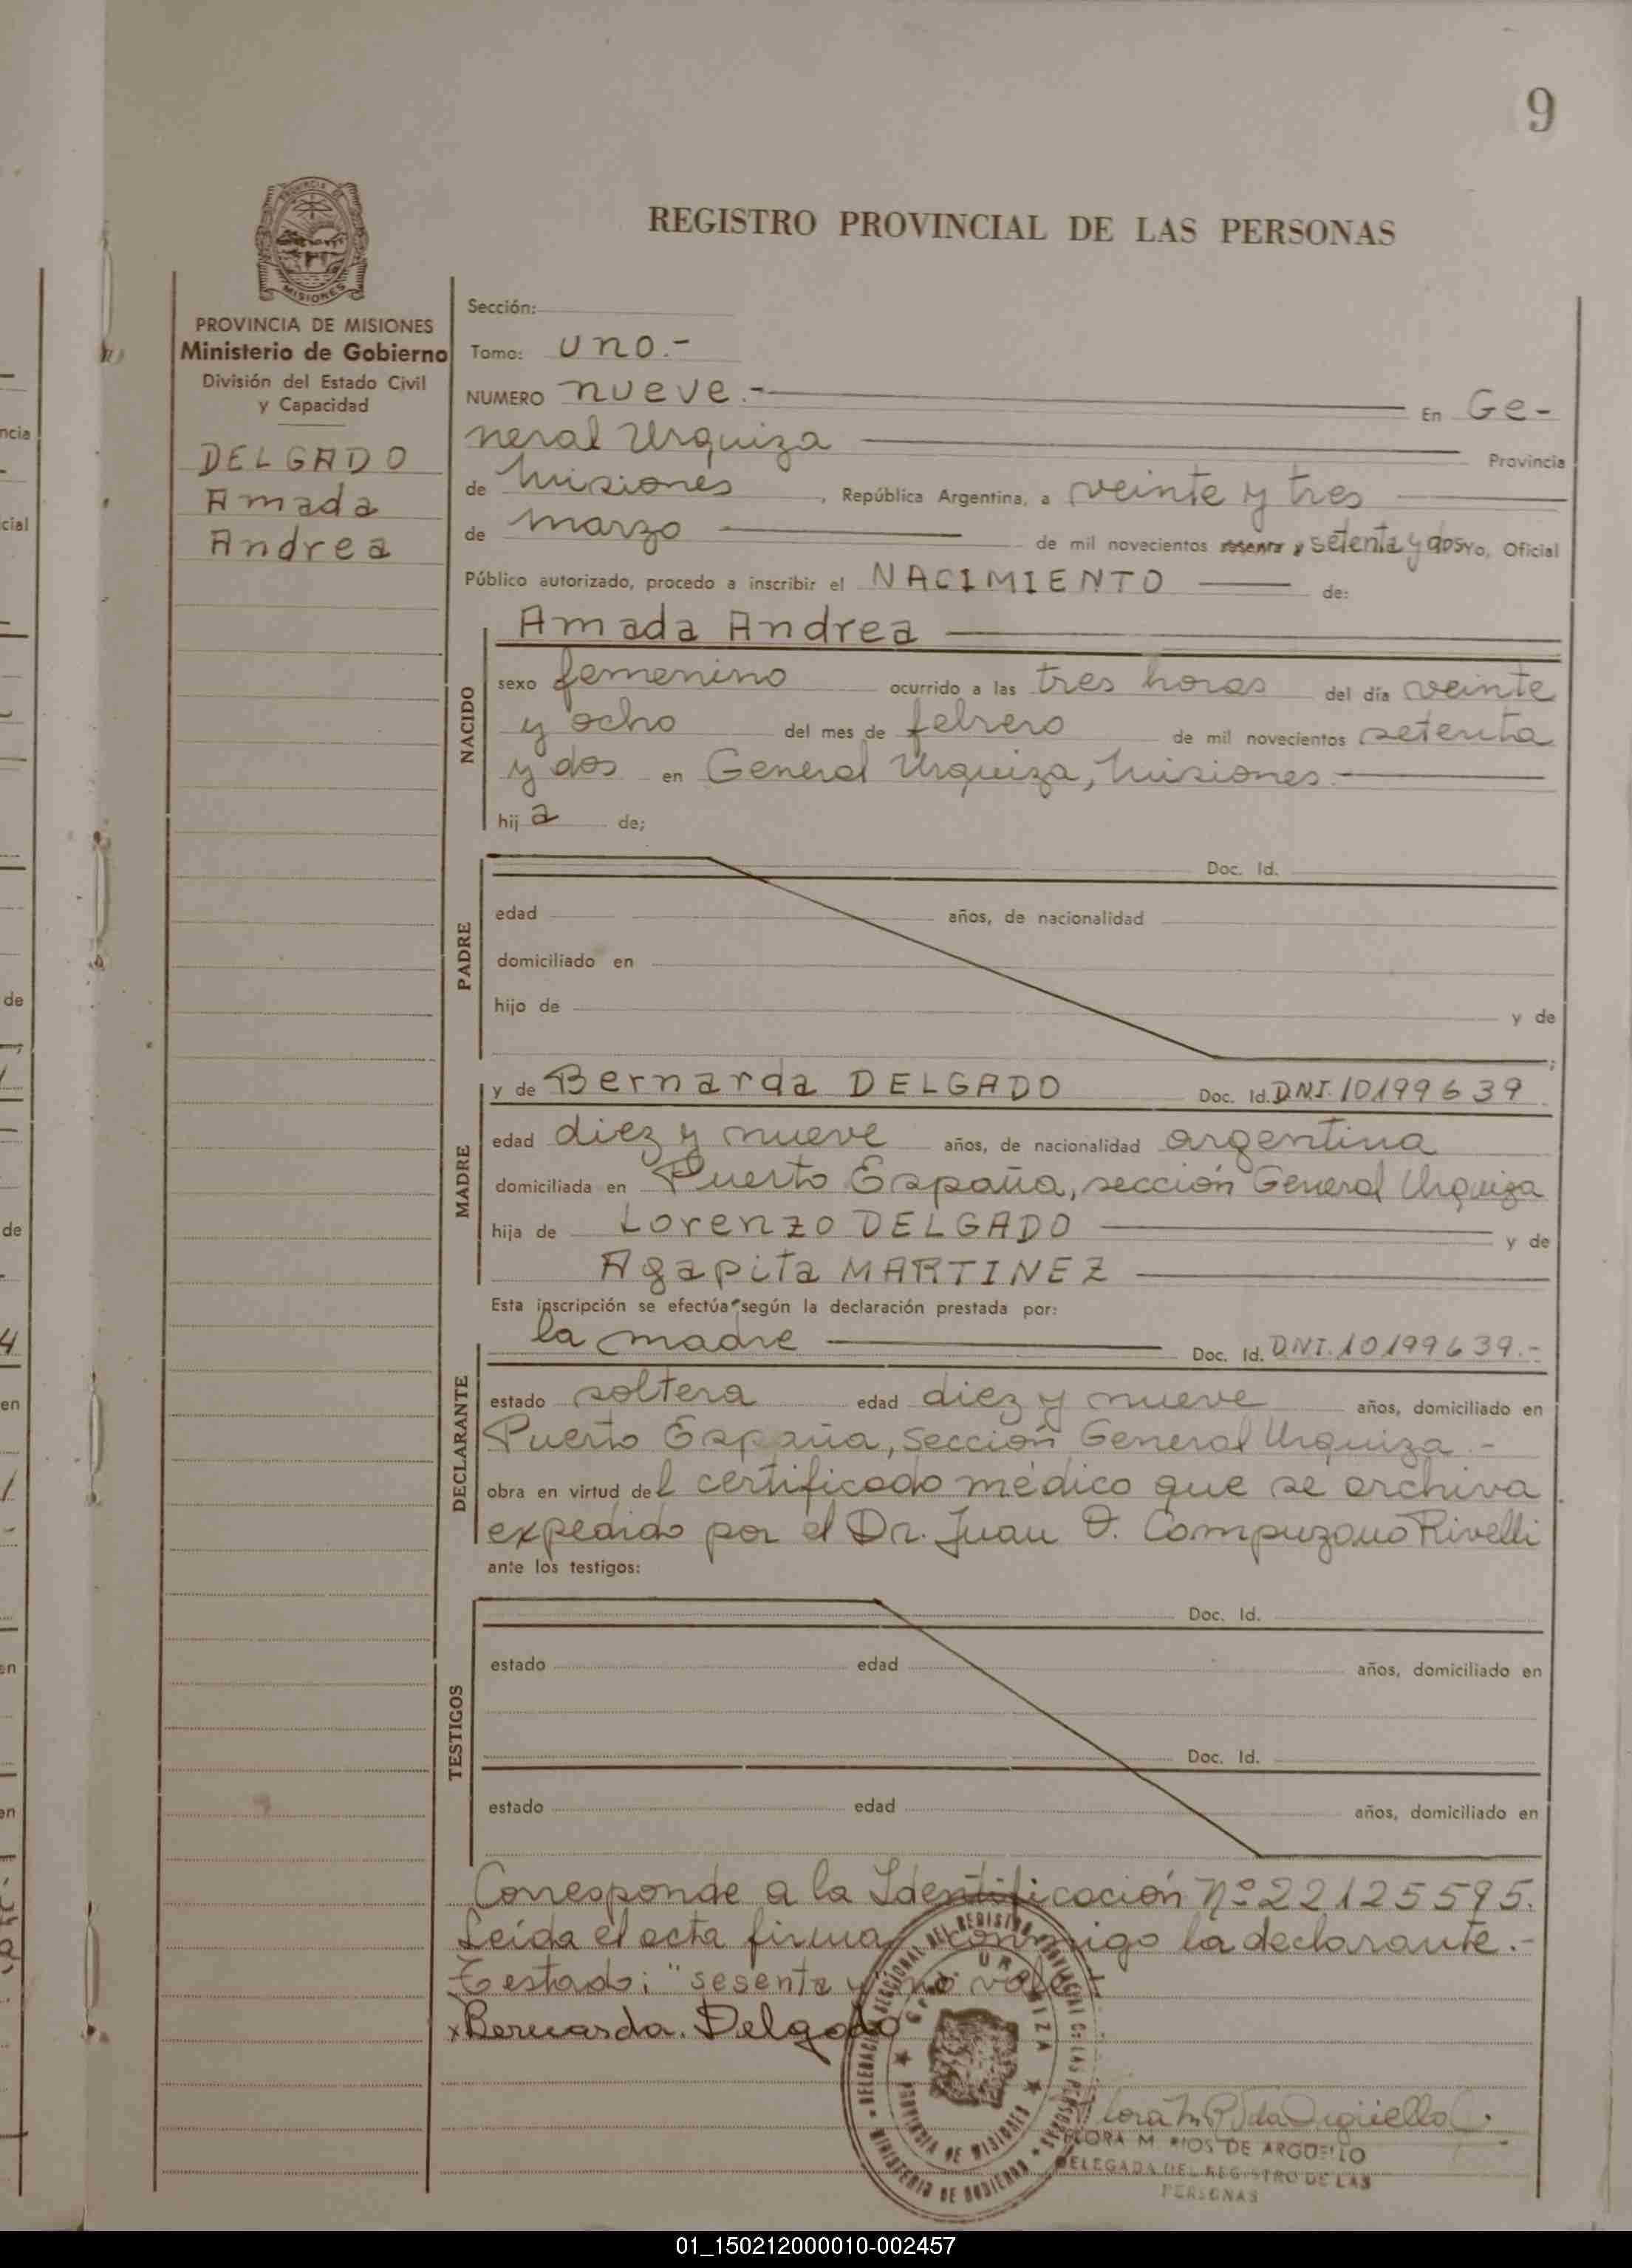 9
REGISTRO PROVINCIAL DE LAS PERSONAS
PROVINCIA DE
MISIONES
PROVINCIA DE MISIONES
Ministerio de Gobierno
División del Estado Civil
y Capacidad
DELGADO
Amada
Andrea
Sección:
Tomo: uno.-
NUMERO nueve.- En Ge-
neral Urquiza Provincia
de Misiones, República Argentina, a veinte y tres
de marzo de mil novecientos sesenta y setenta y dos Yo, Oficial
Público autorizado, procedo a inscribir el NACIMIENTO de:
NACIDO
Amada Andrea
sexo femenino ocurrido a las tres horas del día veinte
y ocho del mes de febrero de mil novecientos setenta
y dos en General Urquiza, Misiones.-
hij a de;
PADRE
Doc. Id.
edad años, de nacionalidad
domiciliado en
hijo de y de
;
MADRE
y de Bernarda DELGADO Doc. Id. DNI. 10199639
edad diez y nueve años, de nacionalidad argentina
domiciliada en Puerto España, sección General Urquiza
hija de Lorenzo DELGADO y de
Agapita MARTINEZ
Esta inscripción se efectúa según la declaración prestada por:
DECLARANTE
la madre Doc. Id. DNI. 10199639.-
estado soltera edad diez y nueve años, domiciliado en
Puerto España, sección General Urquiza.-
obra en virtud del certificado médico que se archiva
expedido por el Dr. Juan Rivelli
ante los testigos:
TESTIGOS
Doc. Id.
estado edad años, domiciliado en
Doc. Id.
estado edad años, domiciliado en
Corresponde a la Identificación Nº 22125595.
Leída el acta firma conmigo la declarante.-
Testado: "sesenta y" no vale
x Bernarda. Delgado
DELEGACION SECCIONAL DEL REGISTRO PROVINCIAL DE LAS PERSONAS
MINISTERIO DE GOBIERNO
GRAL. URQUIZA
PROVINCIA DE MISIONES
FLORA M. RIOS DE ARGUELLO
DELEGADA DEL REGISTRO DE LAS
PERSONAS
01_150212000010-002457